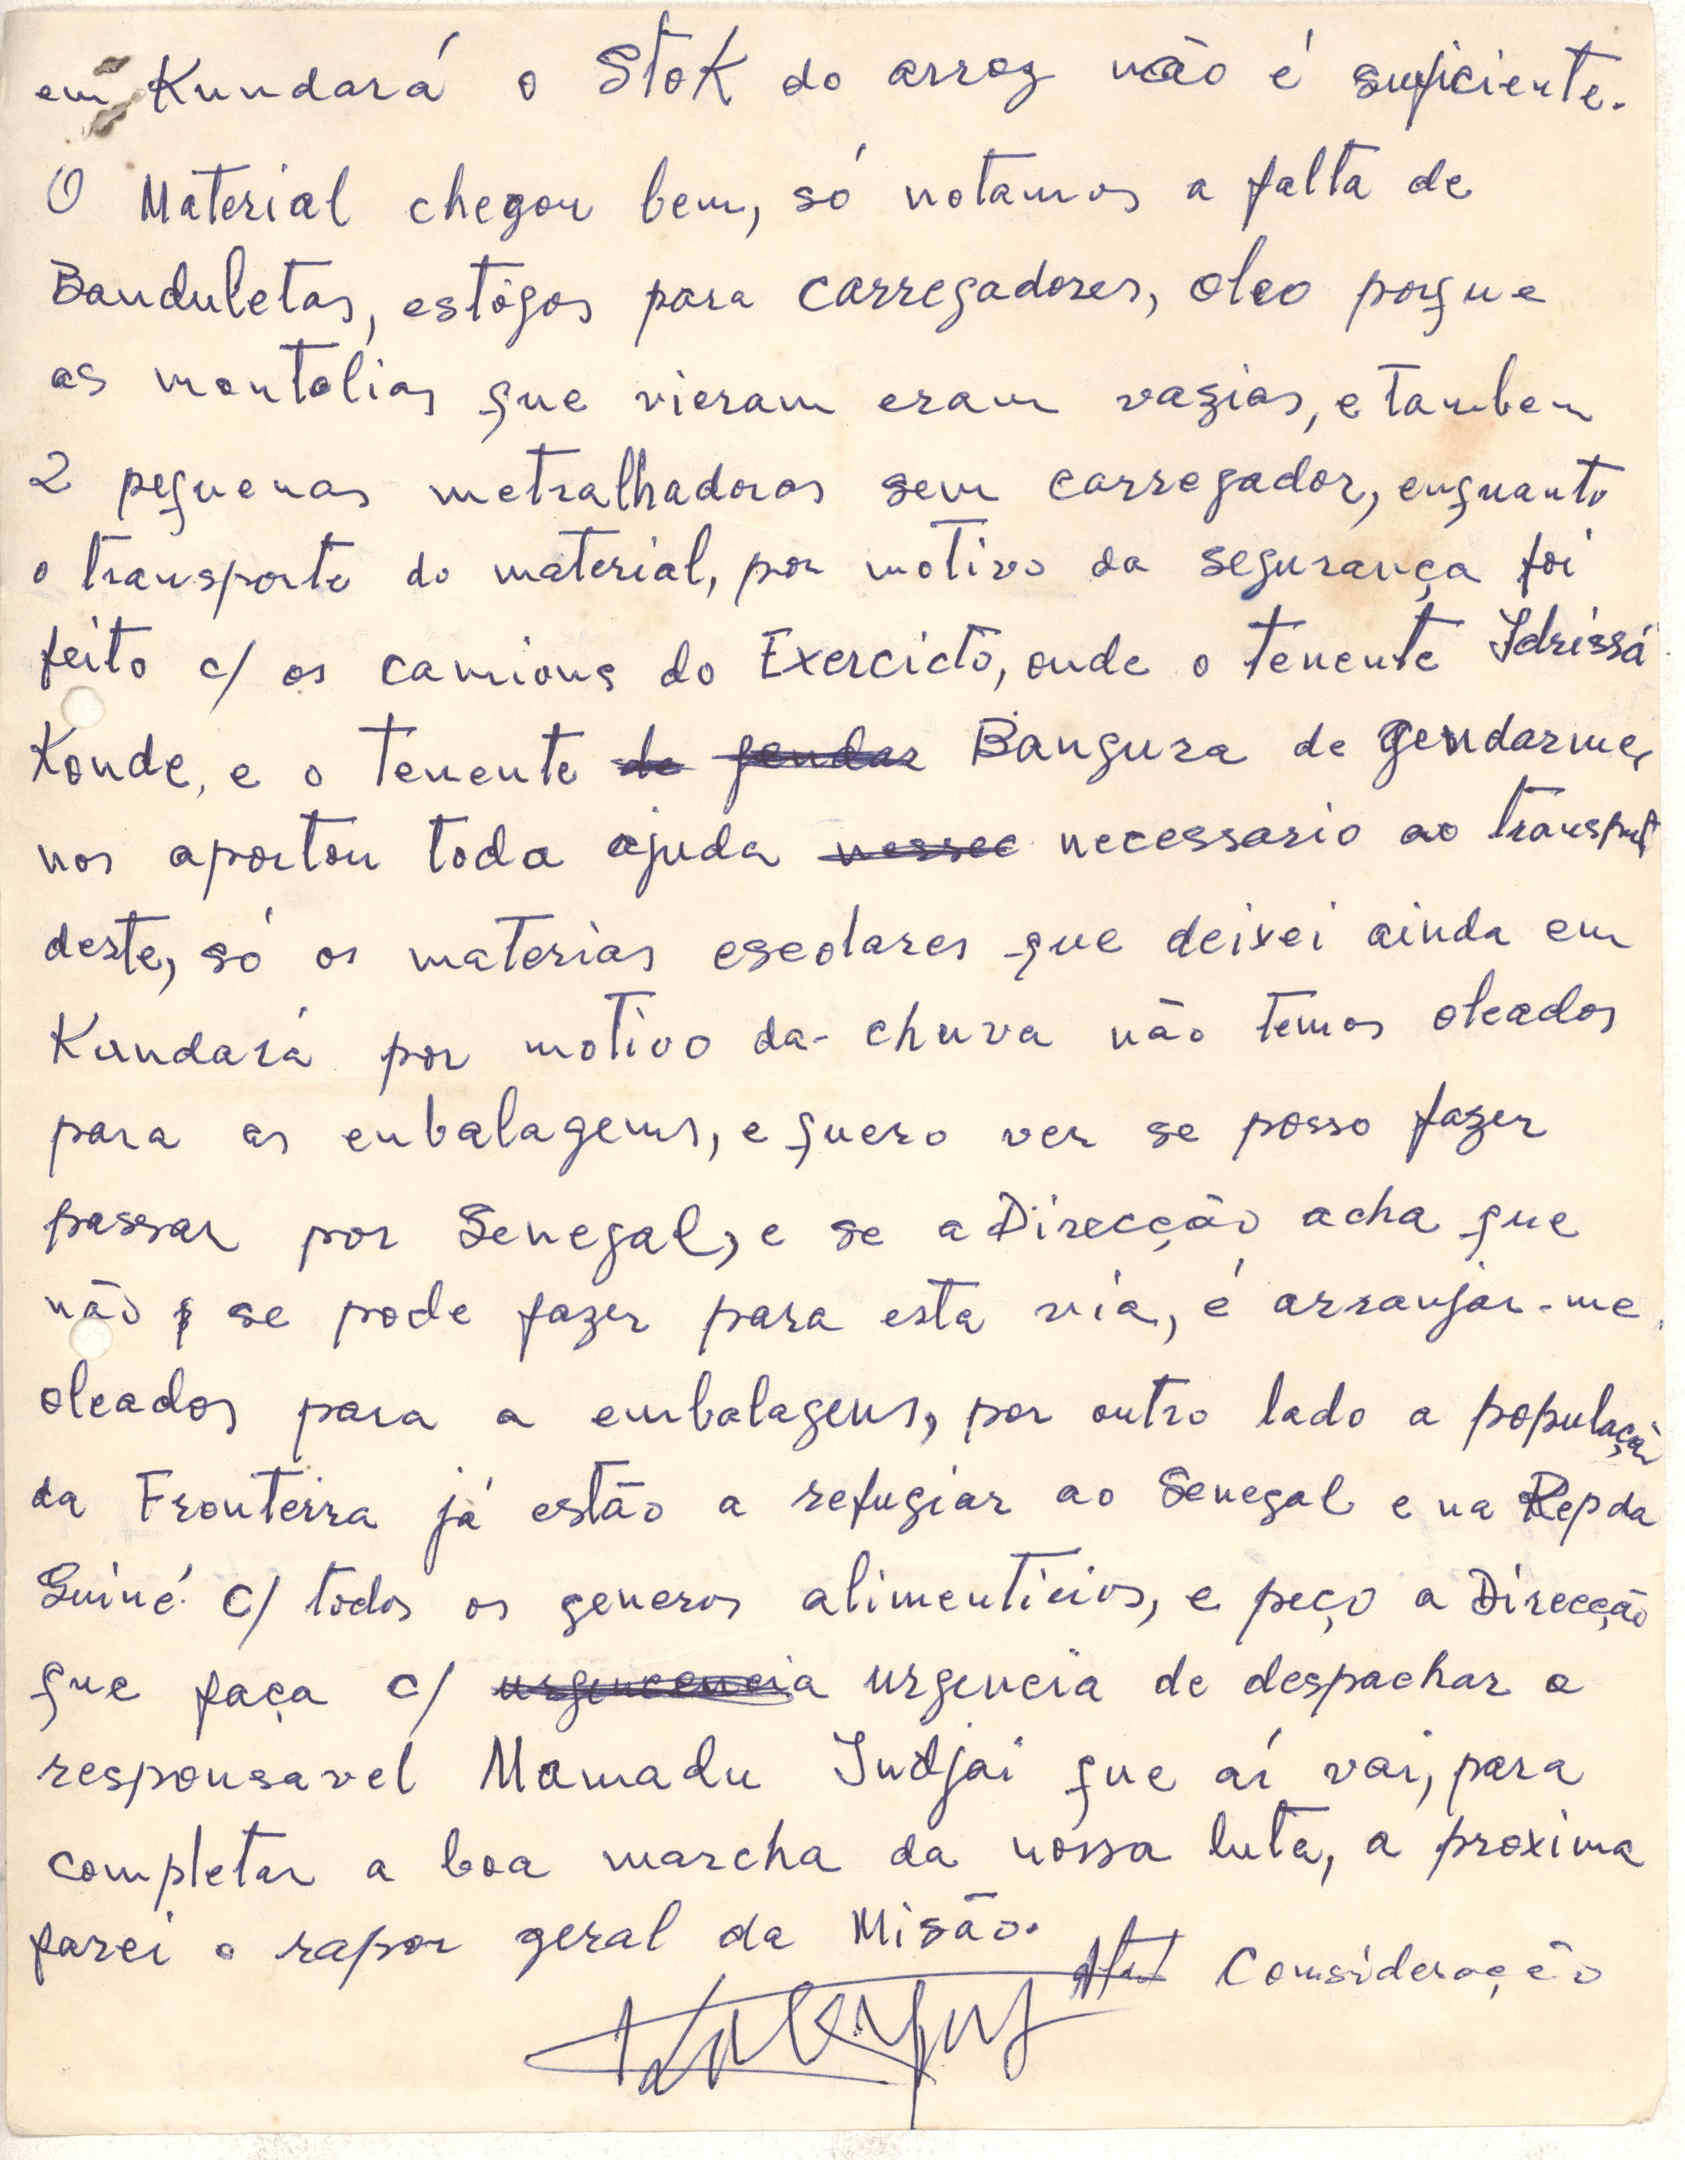 em Kundará o Stok do arroz não é suficiente.
O Material chegou bem, só notamos a falta de
Banduletas, estôgos para carregadores, oleo porque
as montolias que vieram eram vazias, e tambem
2 pequenas metralhadoras sem carregador, enquanto
o transporte do material, por motivo da segurança foi
feito c/ os camions do Exercicto, onde o tenente Idrissá
Konde, e o tenente de gendar Bangura de gendarme,
nos aportou toda ajuda nessec necessario ao transport
deste, só os materias escolares que deixei ainda em
Kundará por motivo da chuva não temos oleados
para as enbalagems, e quero ver se posso fazer
passar por Senegal, e se a Direcção acha que
não se pode fazer para esta via, é arranjar-me
oleados para a embalagens, por outro lado a população
da Fronteira já estão a refugiar ao Senegal e na Rep da
Guiné c/ todos os generos alimenticios, e peço a Direcção
que faça c/ urgencencia urgencia de despachar o
responsavel Mamadu Indjai que aí vai, para
completar a boa marcha da nossa luta, a proxima
farei o rapor geral da Misão.
Consideração